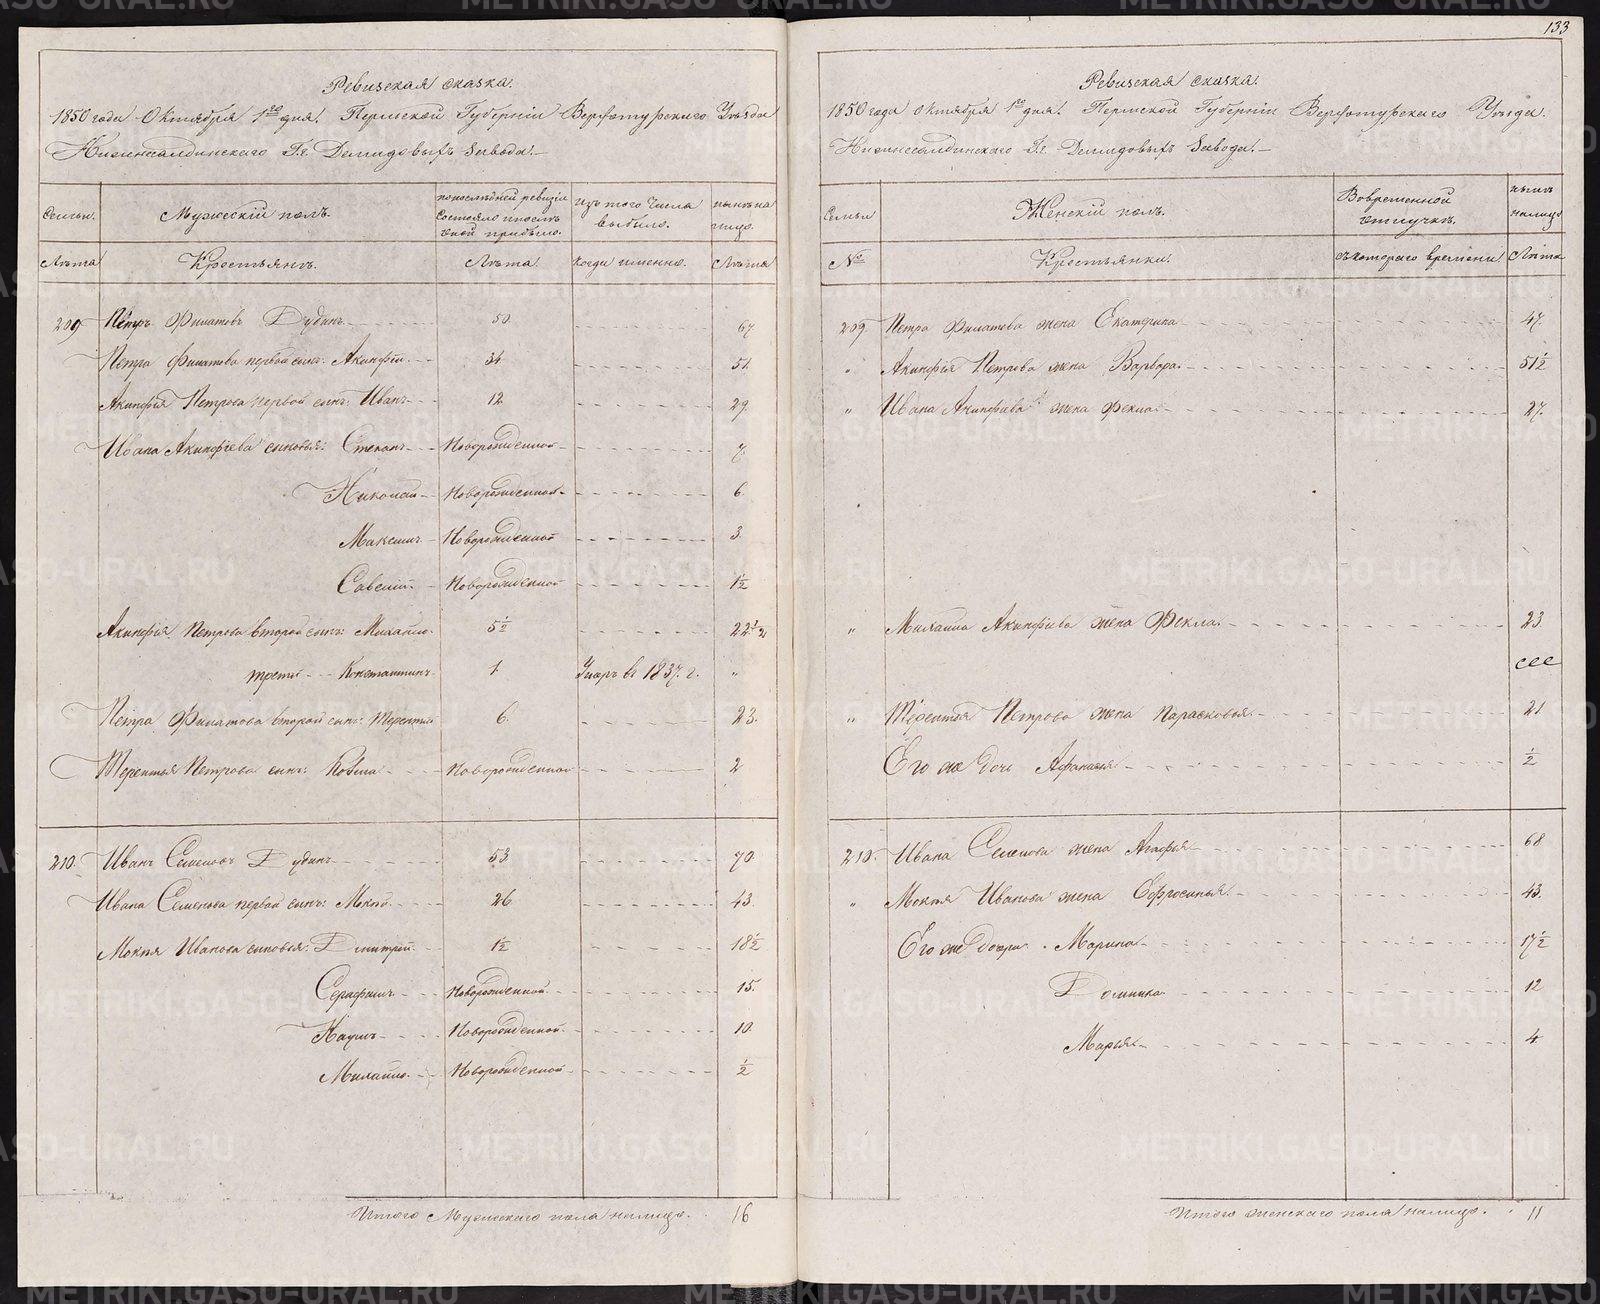 Ревизская сказка.
1850 года Октября 1го дня. Пермской Губернiи Верхотурскаго Уѣзда
Нижнесалдинскаго Г.г. Демидовыхъ Завода.
Семьи. Мужескiй полъ. по последней ревизiи состояло и послѣ оной прибыло. Изъ того числа выбыло. нынѣ на лицо.
Лѣта Крестьянъ. Лѣта. Когда именно. Лѣта
209 Петръ Филатовъ Дубинъ 50. 67
Петра Филатова первой сынъ: Акинфiй. 34 51.
Акинфiя Петрова первой сынъ: Иванъ 12 29.
Ивана Акинфiева сыновья: Степанъ Новорожденной 7
Николай Новорожденной 6.
Максимъ Новорожденной 3.
Савелiй Новорожденной 1½
Акинфiя Петрова второй сынъ: Михайло. 5½ 22½
третiй Константинъ 1. Умеръ въ 1837. г. "
Петра Филатова второй сынъ: Терентiй 6. 23.
Терентья Петрова сынъ: Новорожденной 2
210. Иванъ Семеновъ Дубинъ 53 70.
Ивана Семенова первой сынъ: Мокей 26 43.
Мокея Иванова сыновья: Дмитрей 1½ 18½
Серафимъ Новорожденной 15.
Наумъ Новорожденной 10.
Михайло. Новорожденной ½
Итого Мужескаго пола налицо. 16
133
Ревизская сказка.
1850 года Октября 1го дня. Пермской Губернiи Верхотурскаго Уѣзда.
Нижнесалдинскаго Г.г. Демидовыхъ Завода.
Семьи Женскiй полъ. Во временной отлучкѣ. нынѣ налицо
№ Крестьянки. съ котораго времени. Лѣта
209. Петра Филатова жена Екатерина 47.
" Акинфiя Петрова жена Варвара 51½
" Ивана Акинфiева жена Фекла 27.
" Михайла Акинфiева жена Фекла. 23.
" Терентья Петрова жена Парасковья 21
Его же дочь Афанасья ½
210. Ивана Семенова жена Агафья 68
" Мокея Иванова жена Ефросинья. 43.
Его же дочери Марина 17½
Домника 12
Марья 4
Итого женскаго пола налицо. 11
METRIKI.GASO-URAL.RU